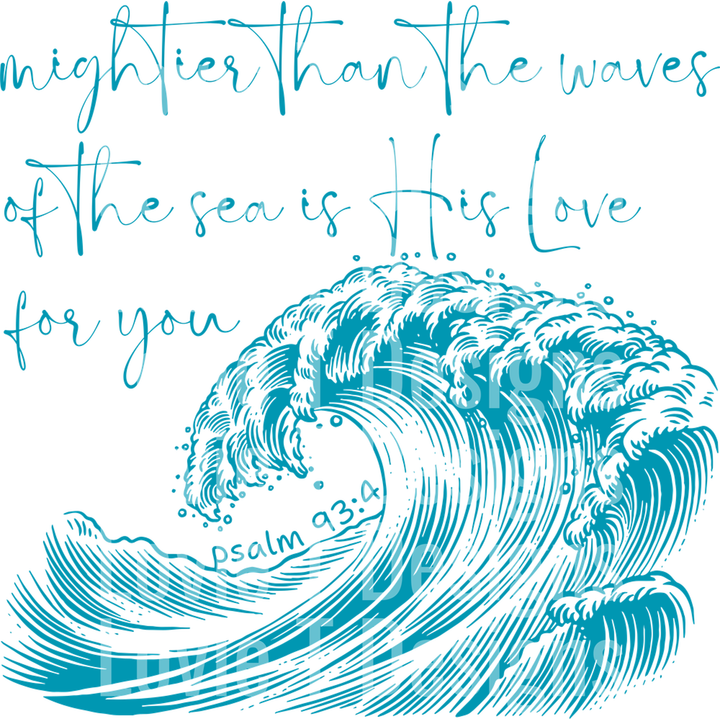 mightier than the waves
of the sea is His Love
for you
psalm 93:4
Lovie T Designs
Lovie T Designs